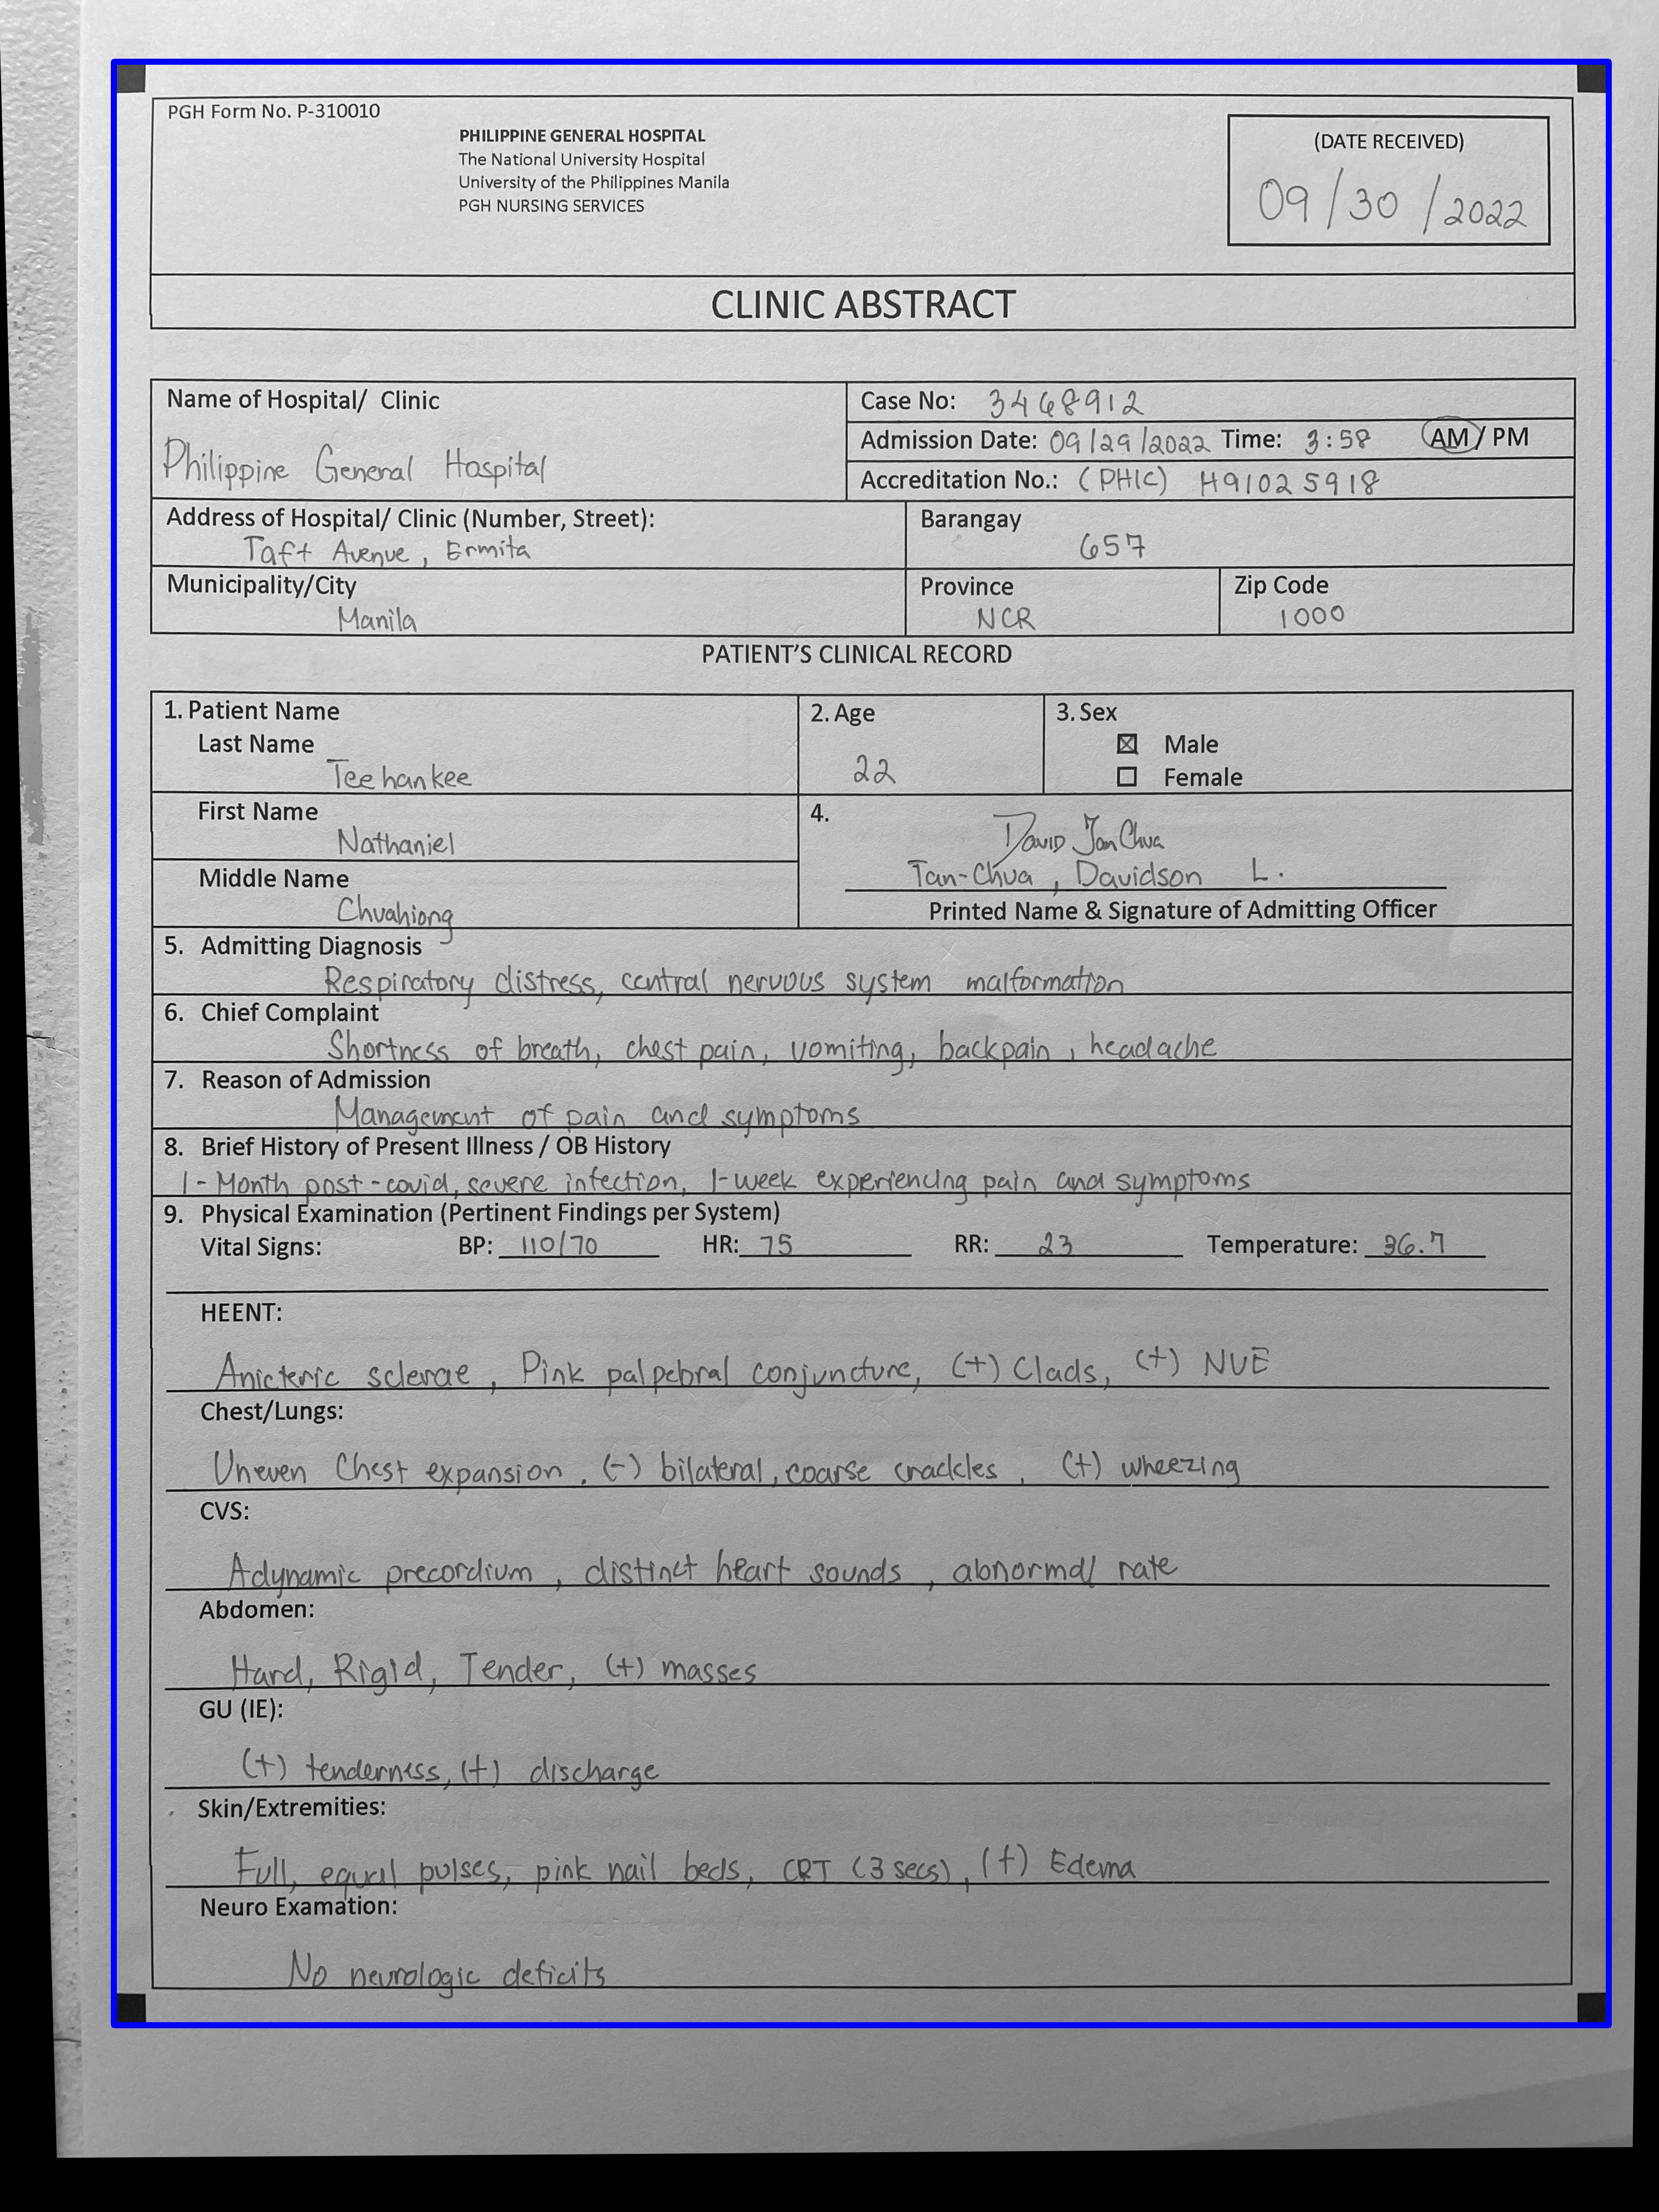 PGH Form No. P-310010
PHILIPPINE GENERAL HOSPITAL
The National University Hospital
University of the Philippines Manila
PGH NURSING SERVICES
(DATE RECEIVED)
09/30/2022
CLINIC ABSTRACT
Name of Hospital/ Clinic
Philippine General Hospital
Case No: 3468912
Admission Date: 09/29/2022 Time: 3:58 AM/ PM
Accreditation No.: (PHIC) H91025918
Address of Hospital/ Clinic (Number, Street):
Taft Avenue, Ermita
Barangay
657
Municipality/City
Manila
Province
NCR
Zip Code
1000
PATIENT'S CLINICAL RECORD
1. Patient Name
Last Name
Teehankee
2. Age
22
3. Sex
☒ Male
☐ Female
First Name
Nathaniel
Middle Name
Chuahiong
4.
David TanChua
Tan-Chua, Davidson L.
Printed Name & Signature of Admitting Officer
5. Admitting Diagnosis
Respiratory distress, central nervous system malformation
6. Chief Complaint
Shortness of breath, chest pain, vomiting, backpain, headache
7. Reason of Admission
Management of pain and symptoms
8. Brief History of Present Illness / OB History
1-Month post-covid, severe infection, 1-week experiencing pain and symptoms
9. Physical Examination (Pertinent Findings per System)
Vital Signs: BP: 110/70 HR: 75 RR: 23 Temperature: 36.7
HEENT:
Anicteric sclerae, Pink palpebral conjuncture, (+) Clads, (+) NUE
Chest/Lungs:
Uneven Chest expansion, (-) bilateral, coarse crackles, (+) wheezing
CVS:
Adynamic precordium, distinct heart sounds, abnormal rate
Abdomen:
Hard, Rigid, Tender, (+) masses
GU (IE):
(+) tenderness, (+) discharge
Skin/Extremities:
Full, equal pulses, pink nail beds, CRT (3 secs), (+) Edema
Neuro Examation:
No neurologic deficits